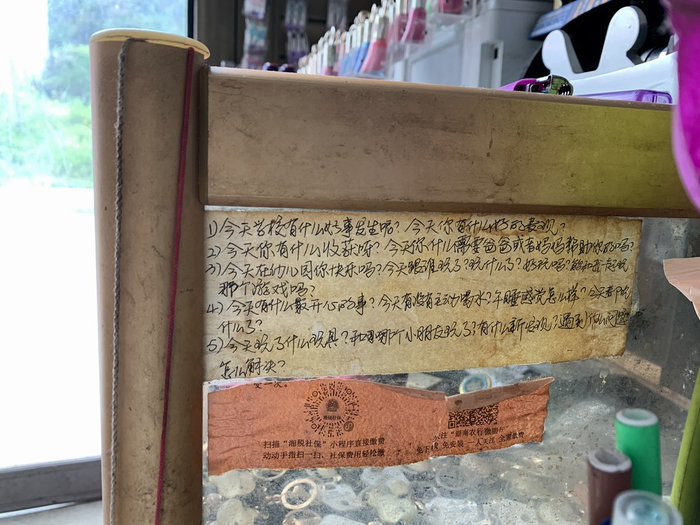 1) 今天学校有什么好事发生呢? 今天你有什么好的表现?
2) 今天你有什么收获呀? 今天你什么需要爸爸或者妈妈帮助你的吗?
3) 今天在幼儿园你快乐吗? 今天跟谁玩了? 玩什么了? 好玩吗? 能和我一起玩
那个游戏吗?
4) 今天有什么最开心的事? 今天有没有主动喝水? 午睡感觉怎么样? 今天都吃
什么了?
5) 今天玩了什么玩具? 和哪个小朋友玩了? 有什么新发现? 遇到
怎么解决?
扫描“湘税社保”小程序直接缴费
动动手指扫一扫、社保费用轻松缴
关注“湖南农行微银行”
免下载 免安装 一人关注 全家缴费